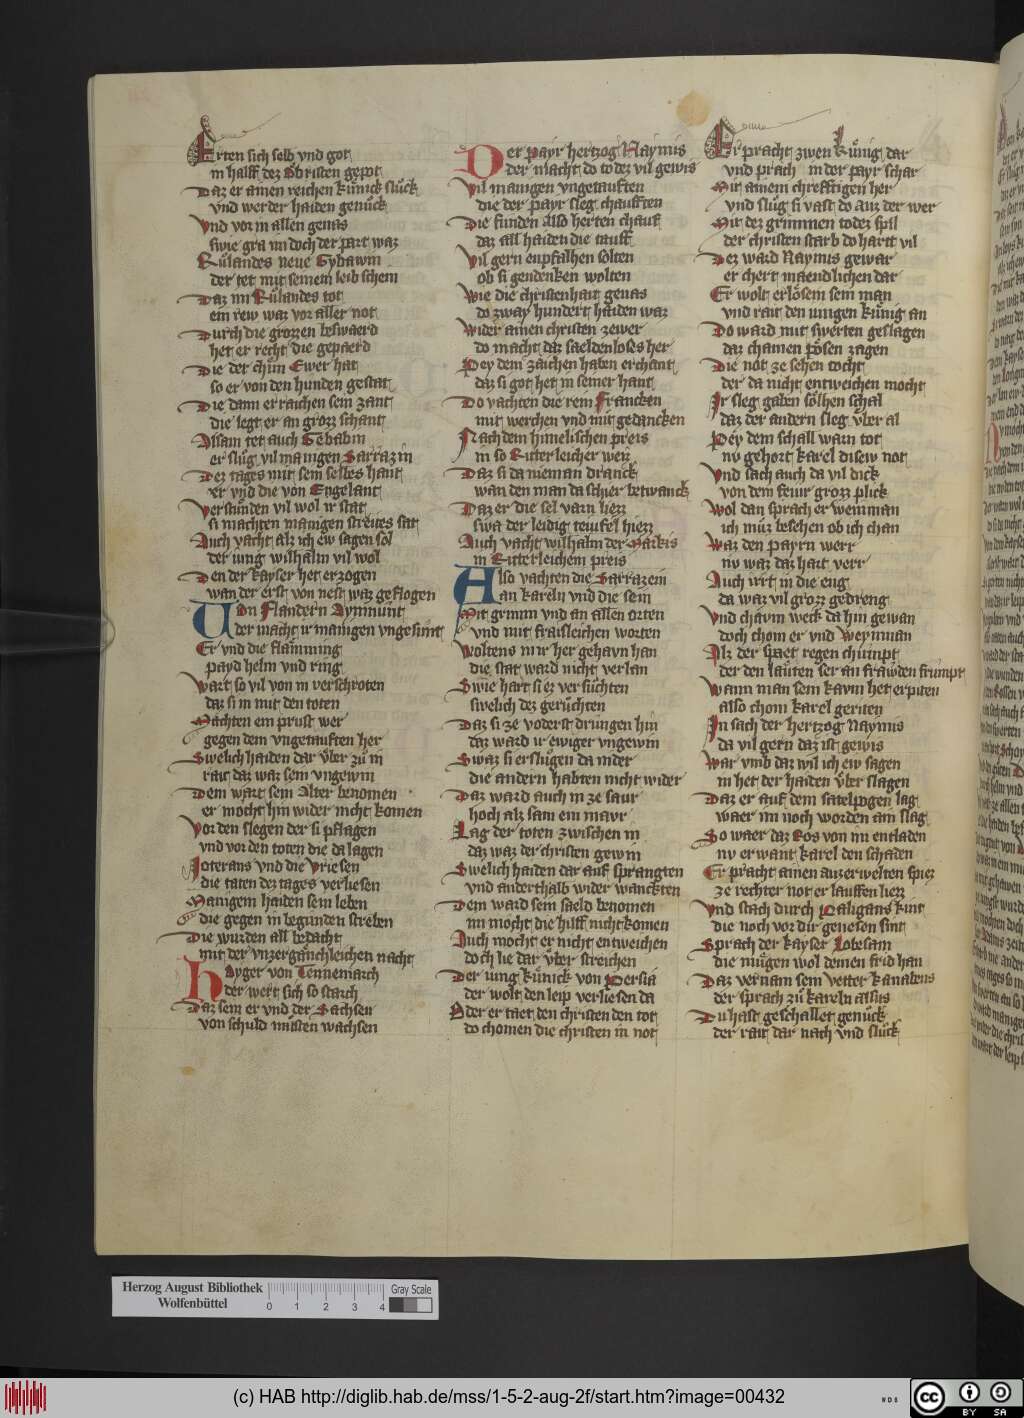 Erten sich selb vnd got
im halff dez Obristen gepot
Daz er ainen reichen kunick sluͤck
vnd wer der haiden genuͤck
Vnd vor in allen genas
swie gra im doch der part waz
Ruͦlandes neue Gybawin
der tet mit seinem leib schein
Daz im Ruͦlandes tot
ein rew waz vor aller not
Durch die grozzen beswaerd
het er recht die gepaerd
Die der chuͤn Ewer hat
so er von den hunden gestat
Die dann erraichen sein zant
die legt er an grozz schant
Alsam tet auch Gebabin
er sluͦg vil manigen Sarrazin
Dez tages mit sein selbes hant
er vnd die von Engelant
Verstuͦnden vil wol ir stat
si machten manigen streites sat
Auch vacht alz ich ew sagen sol
der iung wilhalm vil wol
Den der kayser het erzogen
wan der erst von nest waz geflogen
Von Flandern Aymunt
der macht ir manigen vngesunt
Er vnd die flaͤmming
payd helm vnd ring
Wart so vil von in verschroten
daz si in mit den toten
Machten ein prust wer
gegen dem vngetauften her
Swelich haiden dar vͤber zuͦ in
rait daz waz sein vngewin
Dem wart sein Alter benomen
er mocht hin wider nicht komen
Vor den slegen der si pflagen
vnd vor den toten die da lagen
Joterans vnd die Vriesen
die taten dez tages verliesen
Manigem haiden sein leben
die gegen in begunden streben
Die wurden all bedacht
mit der vnzergaͤnchleichen nacht
Hayger von Tennemarch
der wert sich so starch
Daz sein er vnd der Sachsen
von schuld muͤsten wachsen
Der payr hertzog Naymis
der macht do todez vil gewis
Vil manigen vngetauften
die der payr sleg chaufften
Die funden also herten chauf
daz all haiden die tauff
Vil gern enpfalhen solten
ob si gendenken wolten
Wie die christenhait genas
do zway hundert haiden waz
Wider ainen christen zewer
do macht daz saeldenloses her
Pey dem zaichen haben erchant
daz si got het in seiner hant
Do vachten die rein Francken
mit werchen vnd mit gedancken
Nach dem himelischen preis
in so Ritterleicher weis
Daz si da nieman dranck
wan den man da schier betwanck
Daz er die sel varn liezz
swa der leidig teiufel hiezz
Auch vacht wilhalm der Markis
in Ritterleichem preis
Also vachten die Sarrazein
an kareln vnd die sein
Mit grimm vnd an allen orten
vnd mit fraisleichen worten
Woltens mir her gehavn han
die stat ward nicht verlan
Swie hart si ez versuͦchten
swelich dez geruͦchten
Daz si ze voderst drungen hin
daz ward ir ewiger vngewin
Swaz si ersluͦgen da nider
die andern habten nicht wider
Daz ward auch in ze saur
hoch alz sam ein maur
Lag der toten zwischen in
daz waz der christen gewin
Swelich haiden dar auf sprangten
vnd anderthalb wider wanckten
Dem ward sein saeld benomen
im mocht die hilff nicht komen
Auch mocht er nicht entweichen
doch lie dar vͤber streichen
Der iung kuͤnick von Persia
der wolt den leip verliesen da
Oder er taet den christen den tot
do chomen die christen in not
Er pracht zwen kuͤnig dar
vnd prach in der payr schar
Mit ainem chrefftigen her
vnd sluͦg si vast do auz der wer
Mit dez grimmen todez spil
der christen starb do hart vil
Dez ward Naymis gewar
er chert maendlichen dar
Er wolt erloͤsein sein man
vnd rait den iungen kuͤnig an
Do ward mit swerten geslagen
daz chamen poͤsen zagen
Die not ze sehen tocht
der da nicht entweichen mocht
Ir sleg gaben soͤlhen schal
daz der andern sleg vͤber al
Pey dem schall warn tot
nv gehort karel disew not
Vnd sach auch da vil dick
von dem feiur grozz plick
Wol dan sprach er weinman
ich muͤz besehen ob ich chan
Waz den payrn werr
nv waz daz hart verr
Auch irrt in die eng
da waz vil grozz gedreng
Vnd chaͮm weck da hin gewan
doch chom er vnd Weynman
Alz der spaet regen chumpt
der den lauͤten ser an fraͤwden frumpt
Wann man sein kavm het erpiten
also chom karel geriten
In sach der hertzog Naymis
da vil gern daz ist gewis
War vmb daz wil ich ew sagen
in het der haiden vͤber slagen
Daz er auf dem satelpogen lag
waer im noch worden ain slag
So waer daz Ros von im entladen
nv erwant karel den schaden
Er pracht ainen auzerwelten spiez
ze rechter not er lauffen liezz
Vnd stach durch Paligans kint
die noch vor dir genesen sint
Sprach der kayser Lobesam
die muͤgen wol deinen frid han
Daz vernam sein Vetter Kanabeus
der sprach zuͦ kareln alsus
Du hast geschallet genuͤck
der rait dar nach vnd sluͤck
Herzog August Bibliothek
Wolfenbüttel
0 1 2 3 4
Gray Scale
(c) HAB http://diglib.hab.de/mss/1-5-2-aug-2f/start.htm?image=00432
WDB
cc BY SA